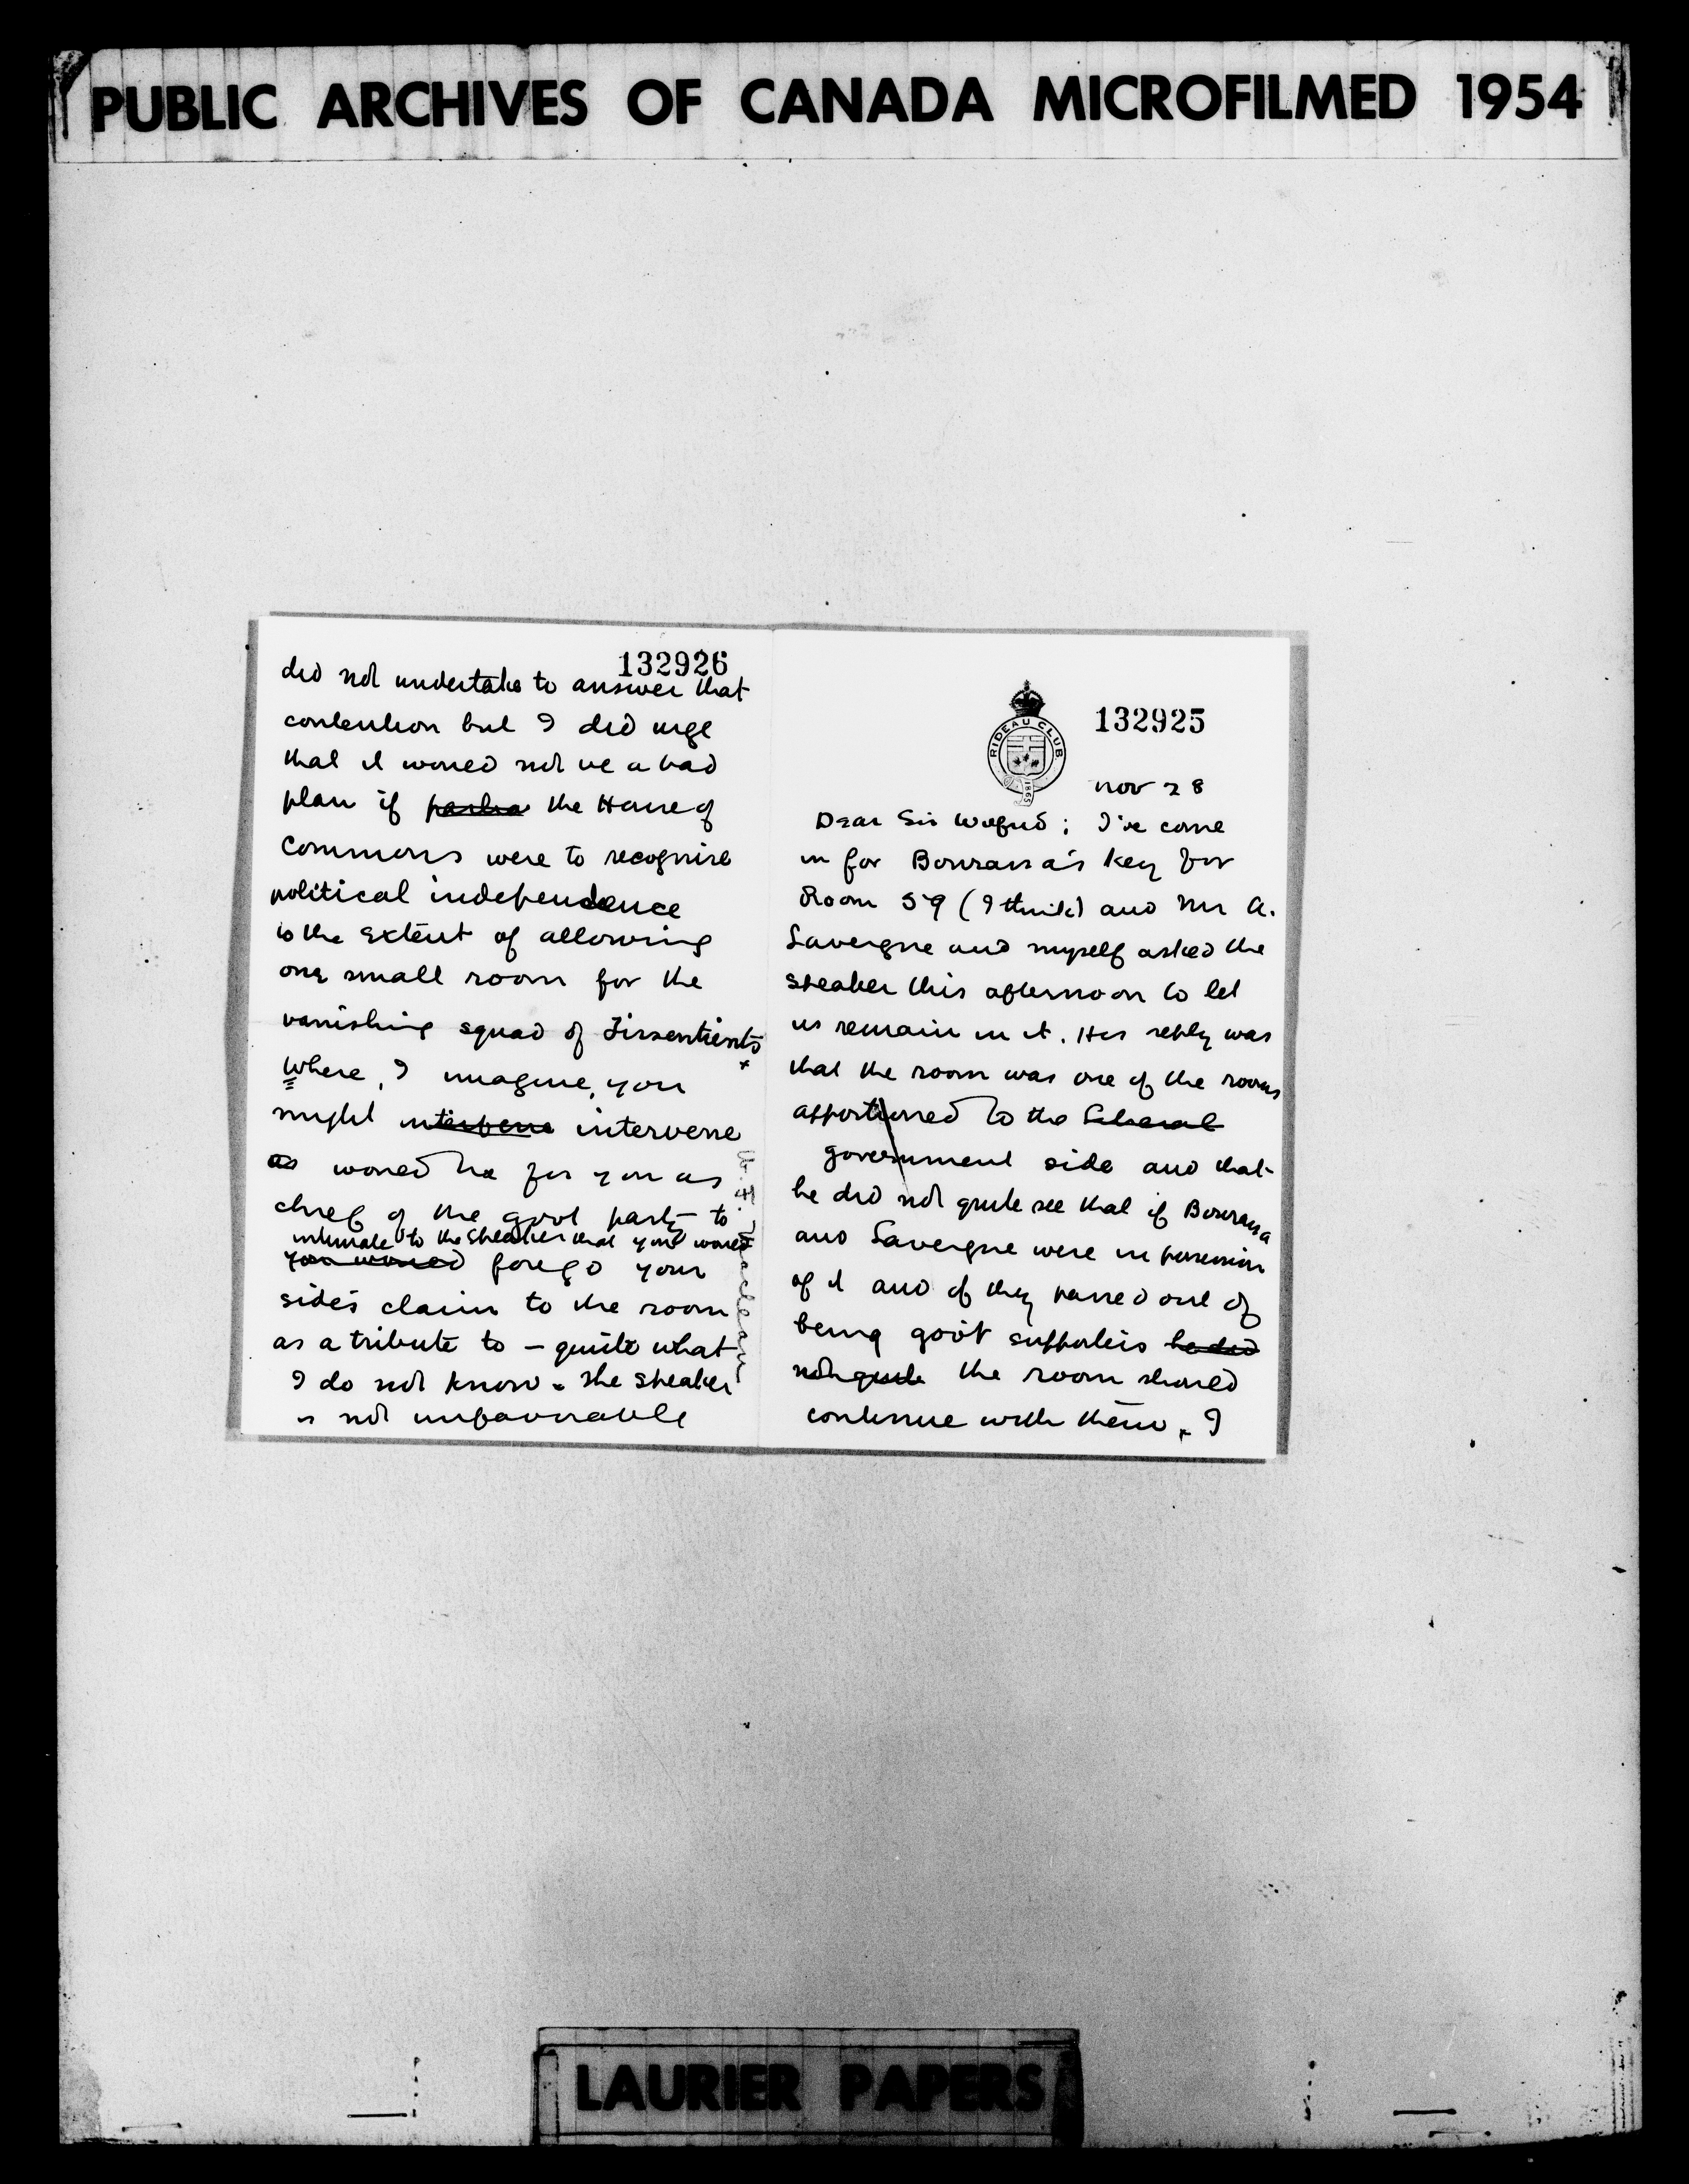 PUBLIC ARCHIVES OF CANADA MICROFILMED 1954
132925
RIDEAU CLUB
1865
Nov 28
Dear Sir Wilfrid; I've come
in for Bourassa's key for
Room 59 (I think) and Mr A.
Lavergne and myself asked the
speaker this afternoon to let
us remain in it. His reply was
that the room was one of the rooms
apportioned to the Liberal
government side and that
he did not quite see that if Bourassa
and Lavergne were in possession
of it and if they passed out of
being gov't supporters he did
not quite the room should
continue with them. I
132926
did not undertake to answer that
contention but I did urge
that it would not be a bad
plan if the House of
Commons were to recognise
political independence
to the extent of allowing
one small room for the
vanishing squad of Dissentients
Where, I imagine, you
might interpene intervene
as would be for you as
chief of the govt party to
intimate to the speaker that you would
you would forego your
side's claim to the room
as a tribute to – quite what
I do not know. The speaker
is not unfavourable
LAURIER PAPERS